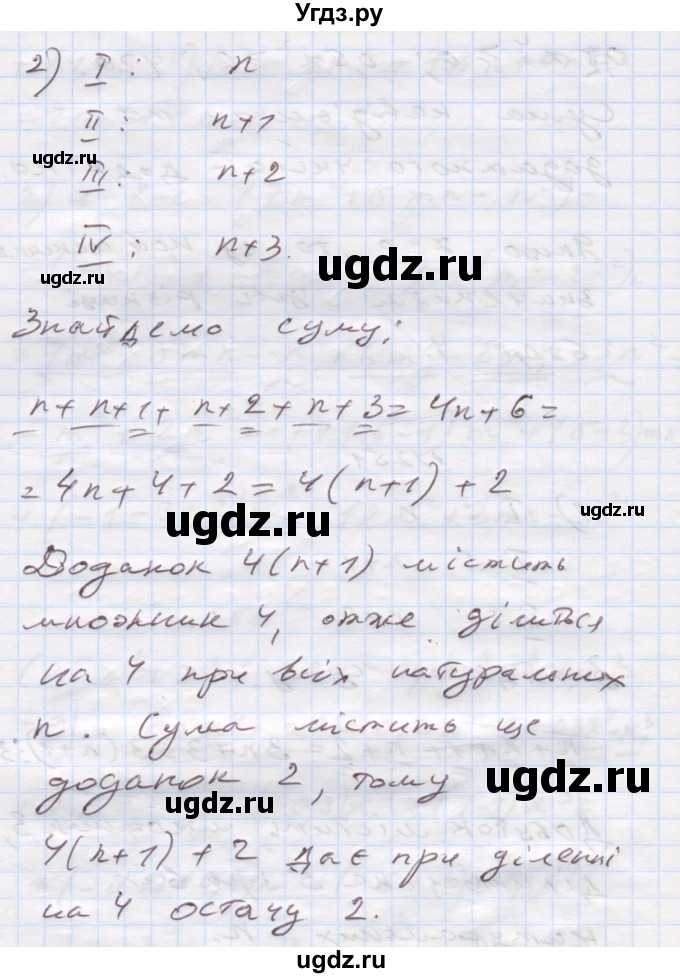 Угдз.ру
2) I : n
II : n+1
ugdz.ru
III : n+2
IV : n+3.
ugdz.ru
ugdz.ru
Знайдемо суму:
n + n+1 + n+2 + n+3 = 4n+6 =
= 4n+4+2 = 4(n+1)+2
ugdz.ru
ugdz.ru
Доданок 4(n+1) містить
множник 4, отже ділиться
на 4 при всіх натуральних
n. Сума містить ще
доданок 2, тому
ugdz.ru
ugdz.ru
4(n+1)+2 дає при діленні
на 4 остачу 2.
ugdz.ru
ugdz.ru